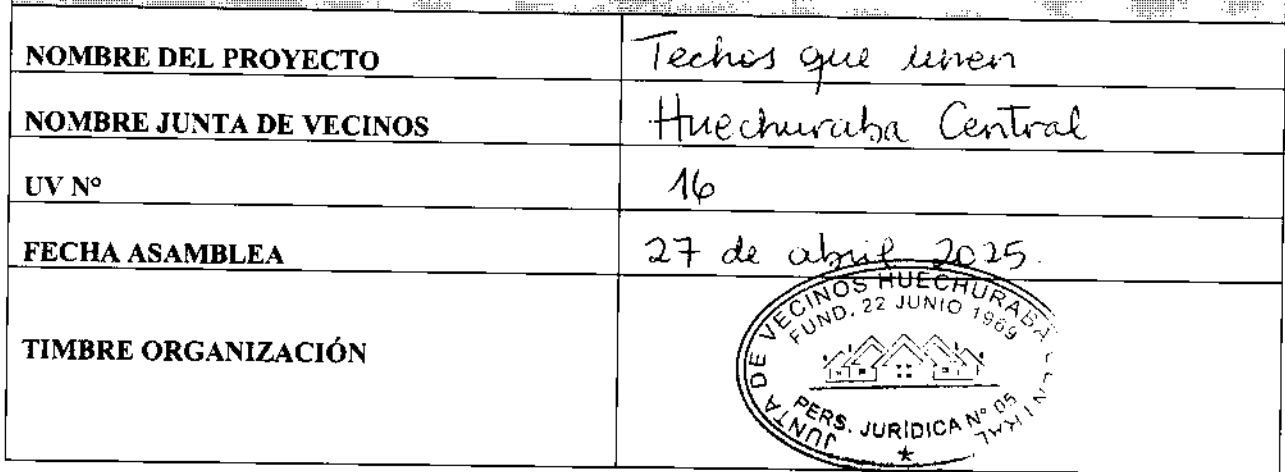 NOMBRE DEL PROYECTO Techos que unen
NOMBRE JUNTA DE VECINOS Huechuraba Central
UV Nº 16
FECHA ASAMBLEA 27 de abril 2025.
TIMBRE ORGANIZACIÓN
JUNTA DE VECINOS HUECHURABA CENTRAL
FUND. 22 JUNIO 1969
PERS. JURIDICA Nº 05